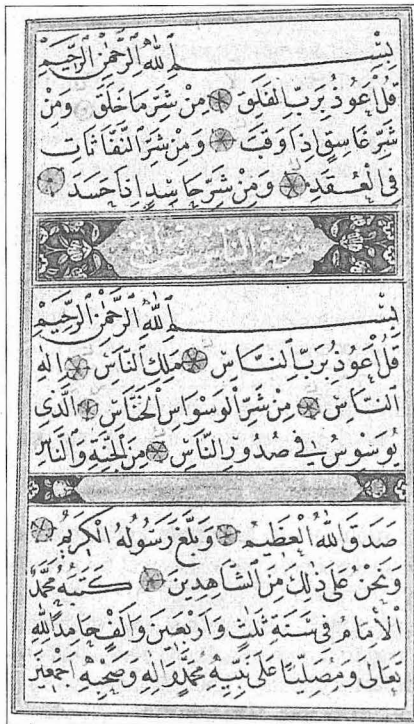 بِسْمِ ٱللَّهِ ٱلرَّحْمٰنِ ٱلرَّحِيمِ
قُلْ أَعُوذُ بِرَبِّ ٱلْفَلَقِ مِنْ شَرِّ مَا خَلَقَ وَمِنْ
شَرِّ غَاسِقٍ إِذَا وَقَبَ وَمِنْ شَرِّ ٱلنَّفَّاثَاتِ
فِي ٱلْعُقَدِ وَمِنْ شَرِّ حَاسِدٍ إِذَا حَسَدَ
سورة الناس
بِسْمِ ٱللَّهِ ٱلرَّحْمٰنِ ٱلرَّحِيمِ
قُلْ أَعُوذُ بِرَبِّ ٱلنَّاسِ مَلِكِ ٱلنَّاسِ إِلٰهِ
ٱلنَّاسِ مِنْ شَرِّ ٱلْوَسْوَاسِ ٱلْخَنَّاسِ ٱلَّذِي
يُوَسْوِسُ فِي صُدُورِ ٱلنَّاسِ مِنَ ٱلْجِنَّةِ وَٱلنَّاسِ
صَدَقَ ٱللَّهُ ٱلْعَظِيمُ وَبَلَّغَ رَسُولُهُ ٱلْكَرِيمُ
وَنَحْنُ عَلَى ذٰلِكَ مِنَ ٱلشَّاهِدِينَ كَتَبَهُ مُحَمَّدٌ
ٱلْإِمَامُ فِي سَنَةِ ثَلٰثٍ وَأَرْبَعِينَ وَأَلْفٍ حَامِدًا لِلَّهِ
تَعَالَى وَمُصَلِّيًا عَلَى نَبِيِّهِ مُحَمَّدٍ وَآلِهِ وَصَحْبِهِ أَجْمَعِينَ